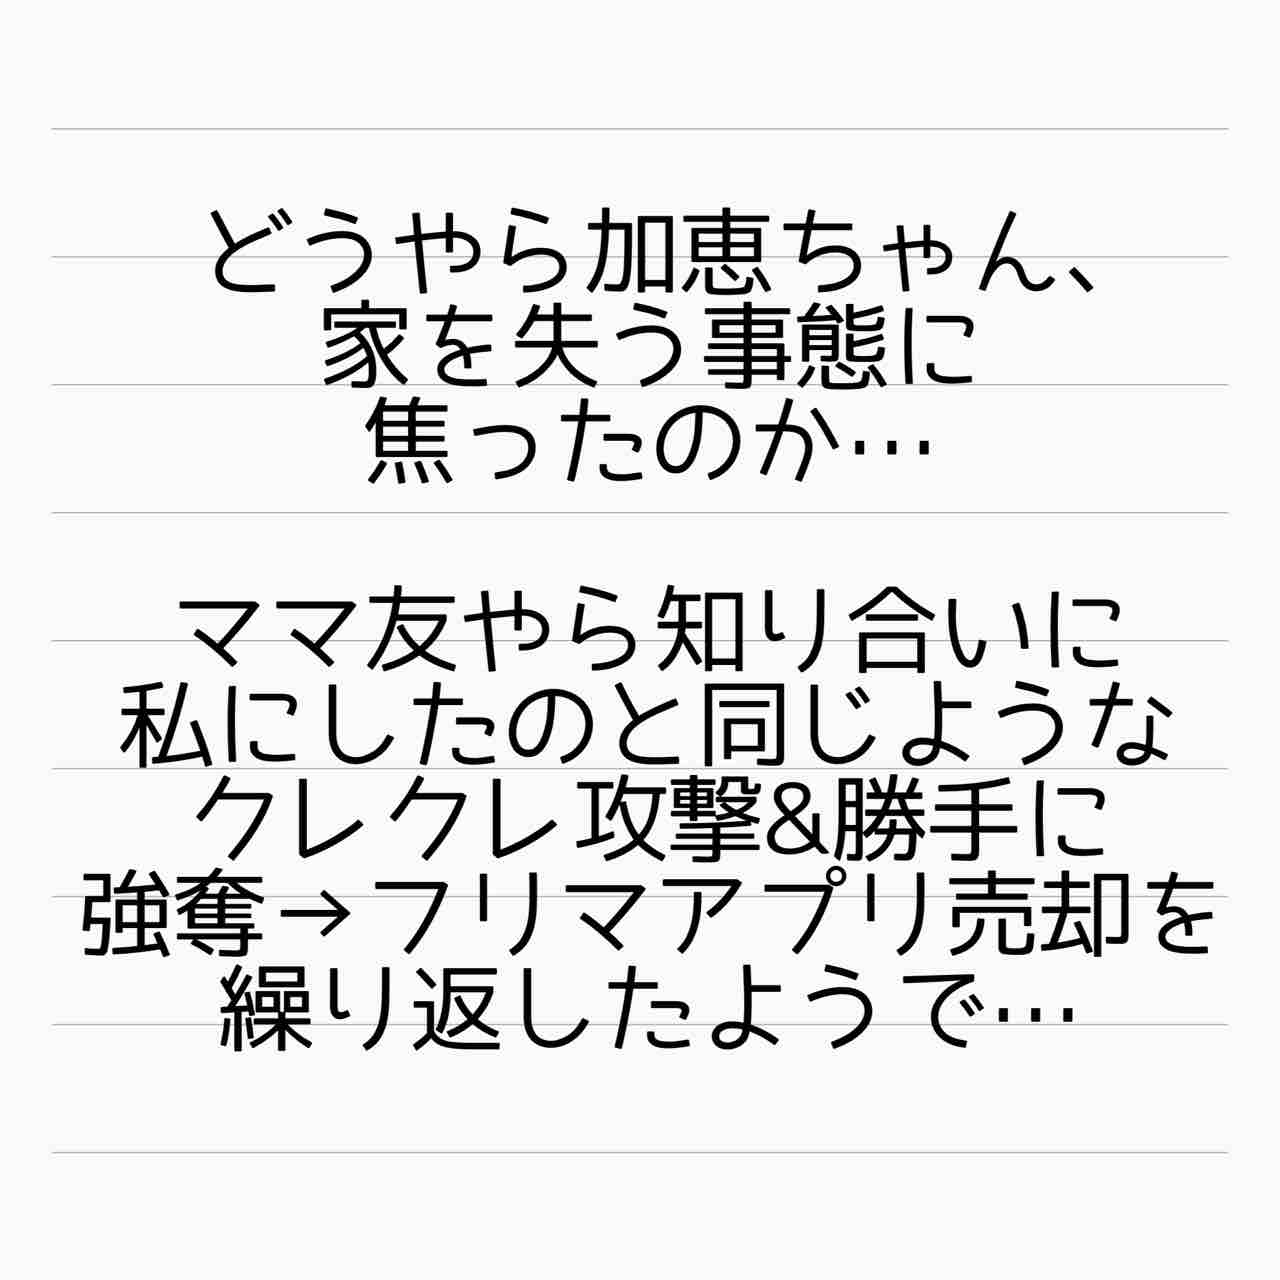 どうやら加恵ちゃん、
家を失う事態に
焦ったのか…
ママ友やら知り合いに
私にしたのと同じような
クレクレ攻撃&勝手に
強奪→フリマアプリ売却を
繰り返したようで…